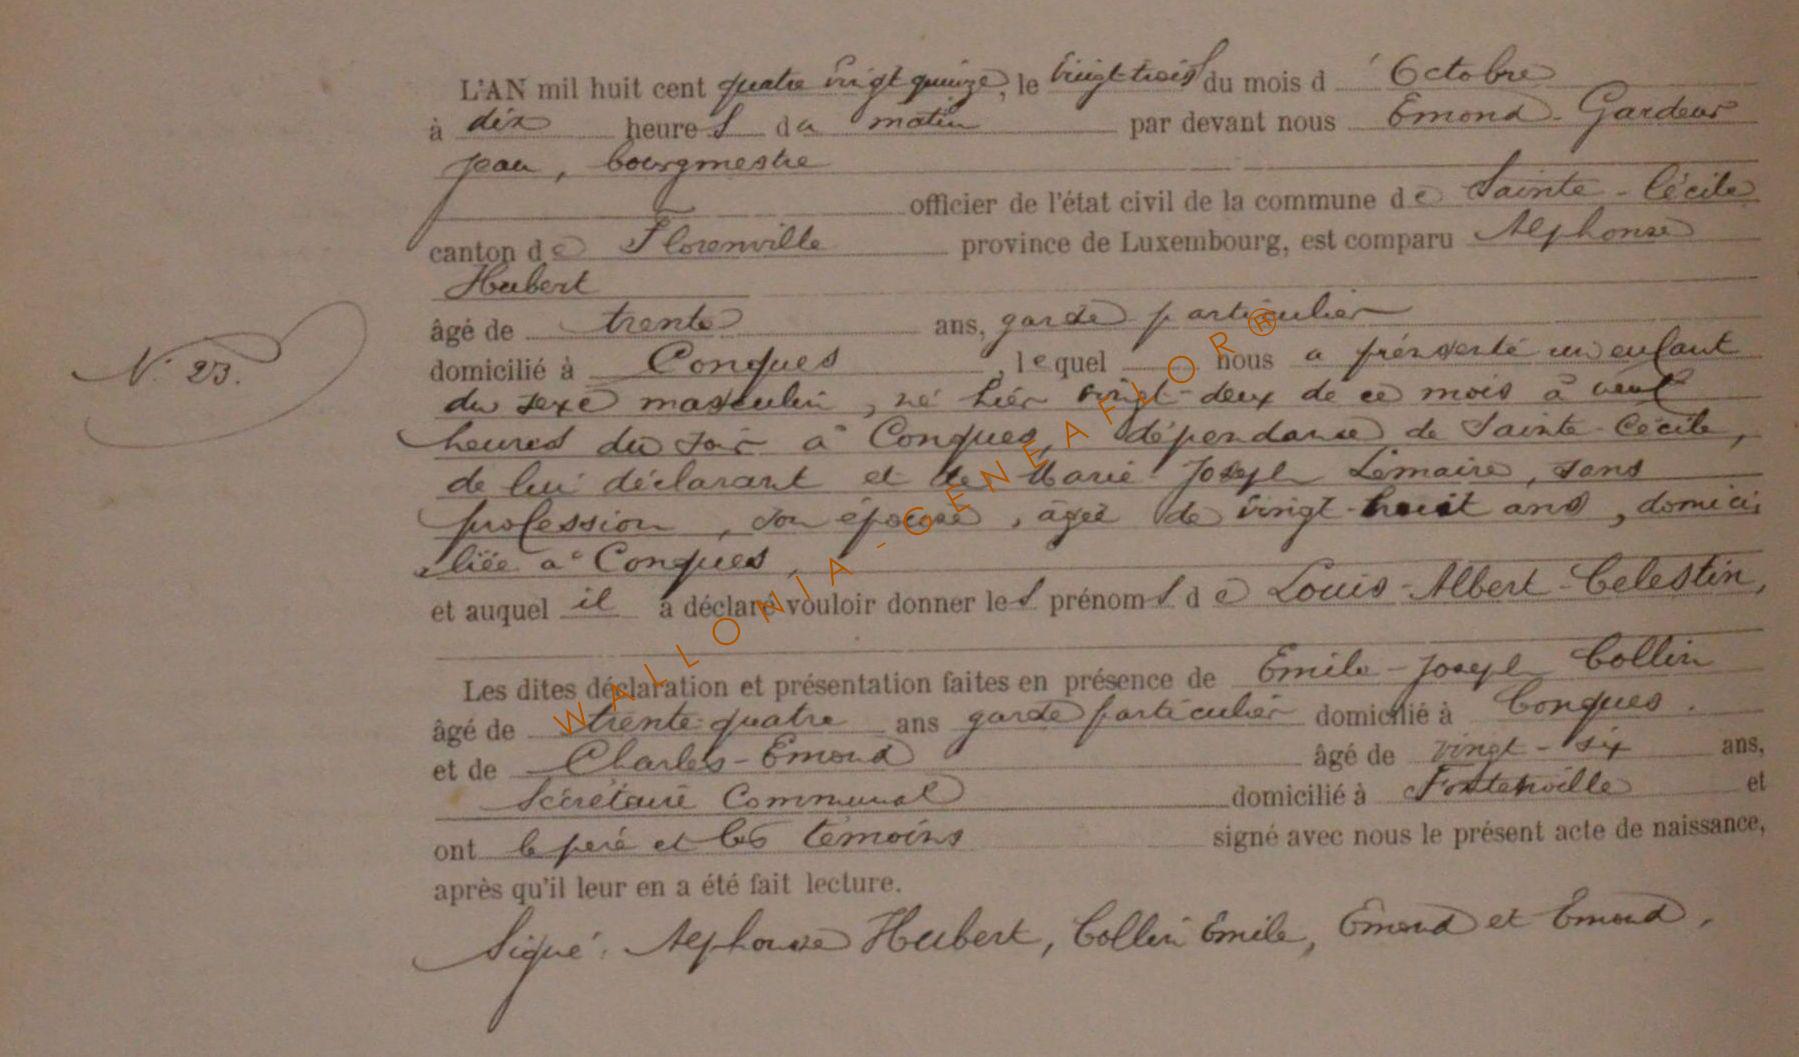 L'AN mil huit cent quatre vingt quinze, le vingt-trois du mois d'Octobre
à dix heures du matin par devant nous Emond-Gardeur
Jean, bourgmestre
officier de l'état civil de la commune de Sainte-Cécile
canton de Florenville province de Luxembourg, est comparu Alphonse
Hubert
âgé de trente ans, garde particulier
N. 23.
domicilié à Conques, lequel nous a présenté un enfant
du sexe masculin, né hier vingt-deux de ce mois à neuf
heures du soir à Conques, dépendance de Sainte-Cécile,
de lui déclarant et de Marie Joseph Lemaire, sans
profession, son épouse, âgée de vingt-huit ans, domici
liée à Conques,
et auquel il a déclaré vouloir donner les prénoms de Louis-Albert-Celestin,
Les dites déclaration et présentation faites en présence de Emile-Joseph Collin
âgé de trente-quatre ans garde particulier domicilié à Conques.
et de Charles-Emond âgé de vingt-six ans,
Sécrétaire Communal domicilié à Fontenoille et
ont le père et les témoins signé avec nous le présent acte de naissance,
après qu'il leur en a été fait lecture.
Signé: Alphonse Hubert, Collin Emile, Emond et Emond.
WALLONIA-GENEAFLOR®